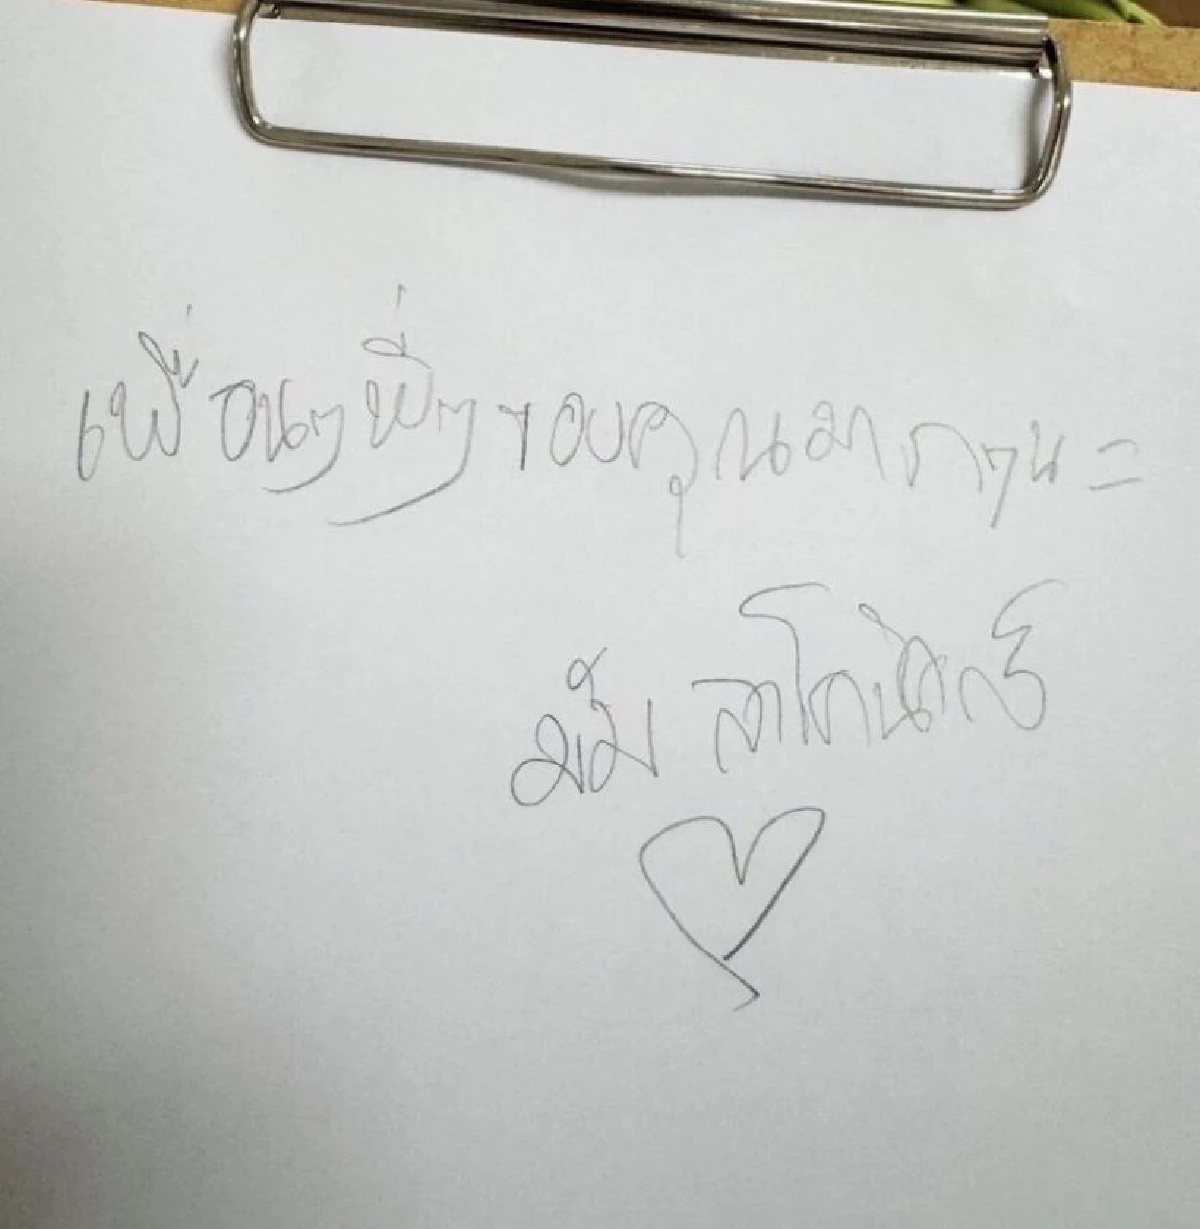 เพื่อนๆพี่ๆ ขอบคุณมากๆนะ
มัม ลาโคนิคส์